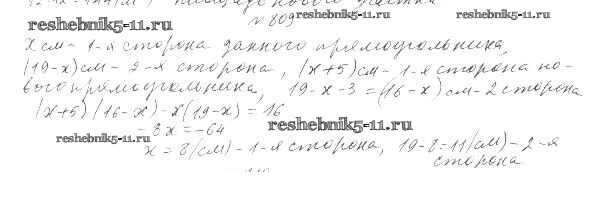 reshebnik5-11.ru
№ 809 reshebnik5-11.ru reshebnik5-11.ru
x см – 1-я сторона данного прямоугольника,
(19-x) см – 2-я сторона, (x+5) см – 1-я сторона но-
вого прямоугольника, 19-x-3=(16-x) см – 2 сторона
(x+5)(16-x)-x(19-x)=16
-8x=-64 reshebnik5-11.ru
reshebnik5-11.ru
x=8 (см) – 1-я сторона, 19-8=11 (см) – 2-я
сторона